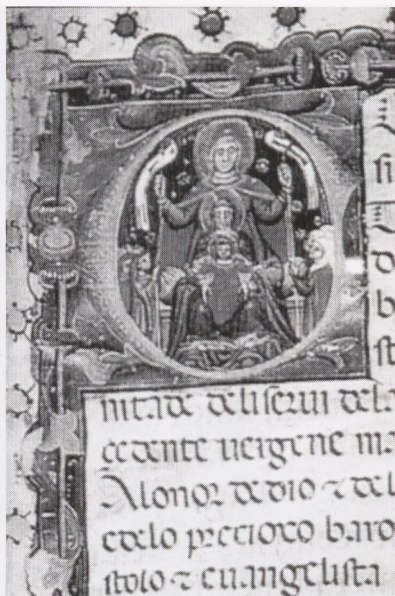 si
d
b
st
nitade deli serui dela
cedente uergene ma
A lonor de dio ⁊ del
edelo precioxo baro
stolo ⁊ euangelista